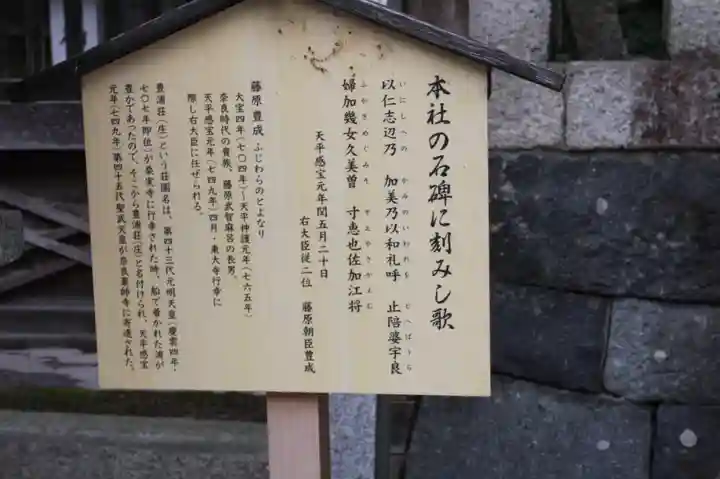 本社の石碑に刻みし歌
いにしへの かみのいわれを とへばうら
以仁志辺乃 加美乃以和礼呼 止陪婆宇良
ふやきめじみそ すえやさかえむ
婦加幾女久美曽 寸恵也佐加江将
天平感宝元年閏五月二十日
右大臣従二位 藤原朝臣豊成
藤原 豊成 ふじわらのとよなり
大宝四年(七〇四年)～天平神護元年(七六五年)
奈良時代の貴族、藤原武智麻呂の長男。
天平感宝元年(七四九年)四月・東大寺行幸に
際し右大臣に任ぜられる。
豊浦荘(庄)という荘園名は、第四十三代元明天皇(慶雲四年・
七〇七年即位)が桑実寺に行幸された時、船で着かれた浦が
豊かであったので、そこから豊浦荘(庄)と名付けられ、天平感宝
元年(七四九年)第四十五代聖武天皇が奈良薬師寺に寄進された。